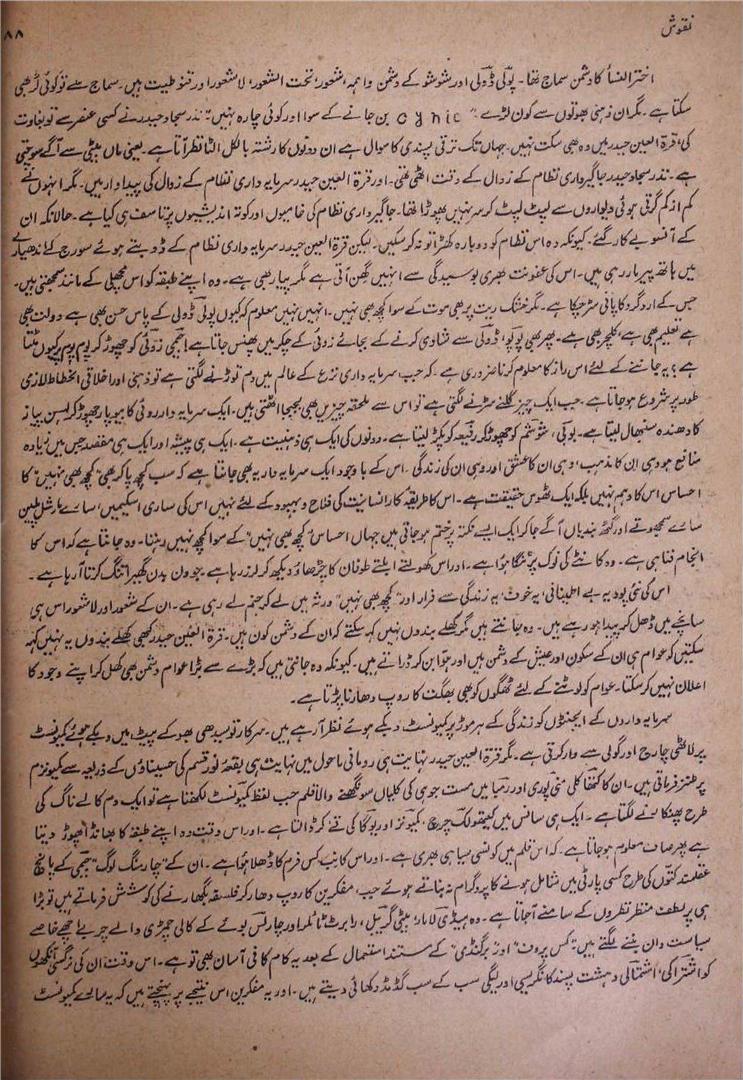 نقوش
۸۸
اختر النسأ کا دشمن سماج تھا۔ پوٹی ڈولی اور شوشو کے دشمن واہمہ، شعور، تحت الشعور، لاشعور اور قنوطیت ہیں۔ سماج سے تو کوئی لڑ بھی
سکتا ہے۔ مگر ان ذہنی بھوتوں سے کون لڑے۔ "cynic بن جانے کے سوا اور کوئی چارہ نہیں" نذر سجاد حیدر نے کسی عنصر سے تو بغاوت
کی، قرۃ العین حیدر میں وہ بھی سکت نہیں۔ جہاں تک ترقی پسندی کا سوال ہے ان دونوں کا رشتہ بالکل الٹا نظر آتا ہے۔ یعنی ماں بیٹی سے آگے سوچتی
ہے۔ نذر سجاد حیدر جاگیرداری نظام کے زوال کے وقت اٹھی تھی۔ اور قرۃ العین حیدر سرمایہ داری نظام کے زوال کی پیداوار ہیں۔ مگر انہوں نے
کم از کم گرتی ہوئی دیواروں سے لپٹ لپٹ کر سر نہیں پھوڑا تھا۔ جاگیرداری نظام کی خامیوں اور کوتہ اندیشیوں پر تاسف ہی کیا ہے۔ حالانکہ ان
کے آنسو بے کار گئے۔ کیونکہ وہ اس نظام کو دوبارہ کھڑا تو نہ کر سکیں۔ لیکن قرۃ العین حیدر سرمایہ داری نظام کے ڈوبتے ہوئے سورج کے اندھیارے
میں ہاتھ پیر مار رہی ہیں۔ اس کی عفونت بھری بوسیدگی سے انہیں گھن آتی ہے مگر پیار بھی ہے۔ وہ اپنے طبقہ کو اس مچھلی کے مانند سمجھتی ہیں۔
جس کے ارد گرد کا پانی سڑ چکا ہے۔ مگر خشک ریت پر بھی موت کے سوا کچھ بھی نہیں۔ انہیں نہیں معلوم کہ کیوں پوٹی ڈولی کے پاس حسن بھی ہے دولت بھی
ہے تعلیم بھی ہے، کلچر بھی ہے۔ پھر بھی پوپو، ڈولی سے شادی کرنے کے بجائے زوئی کے چکر میں پھنس جاتا ہے! جمی زوئی کو چھوڑ کر پوم پوم پر کیوں مٹتا
ہے؟ یہ جاننے کے لئے اس راز کا معلوم کرنا ضروری ہے۔ کہ جب سرمایہ داری نزع کے عالم میں دم توڑنے لگتی ہے تو ذہنی اور اخلاقی انحطاط لازمی
طور پر شروع ہو جاتا ہے۔ جب ایک چیز گلنے سڑنے لگتی ہے تو اس سے ملحقہ چیزیں بھی بجبجا اٹھتی ہیں۔ ایک سرمایہ دار روئی کا بیوپار چھوڑ کر لہسن پیاز
کا دھندہ سنبھال لیتا ہے۔ پوٹی، شوشم کو چھوڑ کر رفیعہ کو پکڑ لیتا ہے۔ دونوں کی ایک ہی ذہنیت ہے۔ ایک ہی پیشہ اور ایک ہی مقصد جس میں زیادہ
منافع ہو وہی ان کا مذہب، وہی ان کا عشق اور وہی ان کی زندگی۔ اس کے باوجود ایک سرمایہ دار یہ بھی جانتا ہے کہ سب کچھ پا کر بھی "کچھ بھی نہیں" کا
احساس اس کا وہم نہیں بلکہ ایک ٹھوس حقیقت ہے۔ اس کا طریقہ کار انسانیت کی فلاح و بہبود کے لئے نہیں اس کی ساری اسکیمیں، سارے مارشل پلین
سارے سمجھوتے اور گٹھ بندیاں آگے جا کر ایک ایسے نکتہ پر ختم ہو جاتی ہیں جہاں احساس "کچھ بھی نہیں" کے سوا کچھ نہیں رہتا۔ وہ جانتا ہے کہ اس کا
انجام فنا ہی ہے۔ وہ کانٹے کی نوک پر ٹنگا ہوا ہے۔ اور اس کھولتے ابلتے طوفان کا چڑھاؤ دیکھ کر لرز رہا ہے۔ جو دن بدن گھیرا تنگ کرتا آ رہا ہے۔
اس کی نئی پود یہ بے اطمینانی، یہ خوف، یہ زندگی سے فرار اور "کچھ بھی نہیں" ورثہ میں لے کر جنم لے رہی ہے۔ ان کے شعور اور لاشعور اس ہی
سانچے میں ڈھل کر پیدا ہو رہے ہیں۔ وہ جانتے ہیں مگر کھلے بندوں نہیں کہہ سکتے کہ ان کے دشمن کون ہیں۔ قرۃ العین حیدر کبھی کھلے بندوں یہ نہیں کہہ
سکتیں کہ عوام ہی ان کے سکون اور عیش کے دشمن ہیں اور ہوّا بن کر ڈراتے ہیں۔ کیونکہ وہ جانتی ہیں کہ بڑے سے بڑا عوام دشمن بھی کھل کر اپنے وجود کا
اعلان نہیں کر سکتا۔ عوام کو لوٹنے کے لئے ٹھگوں کو بھی بھگت کا روپ دھارنا پڑتا ہے۔
سرمایہ داروں کے ایجنٹوں کو زندگی کے ہر موڑ پر کمیونسٹ دبکے ہوئے نظر آ رہے ہیں۔ سرکار تو سیدھی بھوکے پیٹ میں دبکے ہوئے کمیونسٹ
پر لاٹھی چارج اور گولی سے وار کرتی ہے۔ مگر قرۃ العین حیدر نہایت ہی رومانی ماحول میں نہایت ہی بقعہ نور قسم کی حسیناؤں کے ذریعہ سے کمیونزم
پر طنز فرماتی ہیں۔ ان کا کتھا کلی منی پوری اور رمبا میں مست جوہی کی کلیاں سونگھنے والا قلم جب لفظ کمیونسٹ لکھتا ہے تو ایک دم کالے ناگ کی
طرح پھنکارنے لگتا ہے۔ ایک ہی سانس میں کیتھولک چرچ، کمیونز اور یوگا کی تے کر ڈالتا ہے۔ اور اس وقت وہ اپنے طبقہ کا بھانڈا پھوڑ دیتا
ہے پھر صاف معلوم ہو جاتا ہے۔ کہ اس قلم میں کونسی سیاہی بھری ہے۔ اور اس کا نب کس فرم کا ڈھلا ہوا ہے۔ ان کے "چارمنگ لوگ" جمی کے پانچ
عقلمند کتوں کی طرح کسی پارٹی میں شامل ہونے کا پروگرام نہ بناتے ہوئے جب، مفکرین کا روپ دھار کر فلسفہ بگھارنے کی کوشش فرماتے ہیں تو بڑا
ہی پر لطف منظر نظروں کے سامنے آ جاتا ہے۔ وہ ہیڈی لامار، بیٹی گریبل، رابرٹ ٹائلر اور چارلس بوئے کے کالی چمڑی والے چربے اچھے خاصے
سیاست دان بننے لگتے ہیں "کس پروف" اور "برگنڈی" کے مستند استعمال کے بعد یہ کام کافی آسان بھی تو ہے۔ اس وقت ان کی نرگسی آنکھوں
کو اشتراکی، اشتمالی دہشت پسند کانگریسی اور لیگی سب کے سب گڈمڈ دکھائی دیتے ہیں۔ اور یہ مفکرین اس نتیجے پر پہنچتے ہیں کہ یہ سالے کمیونسٹ